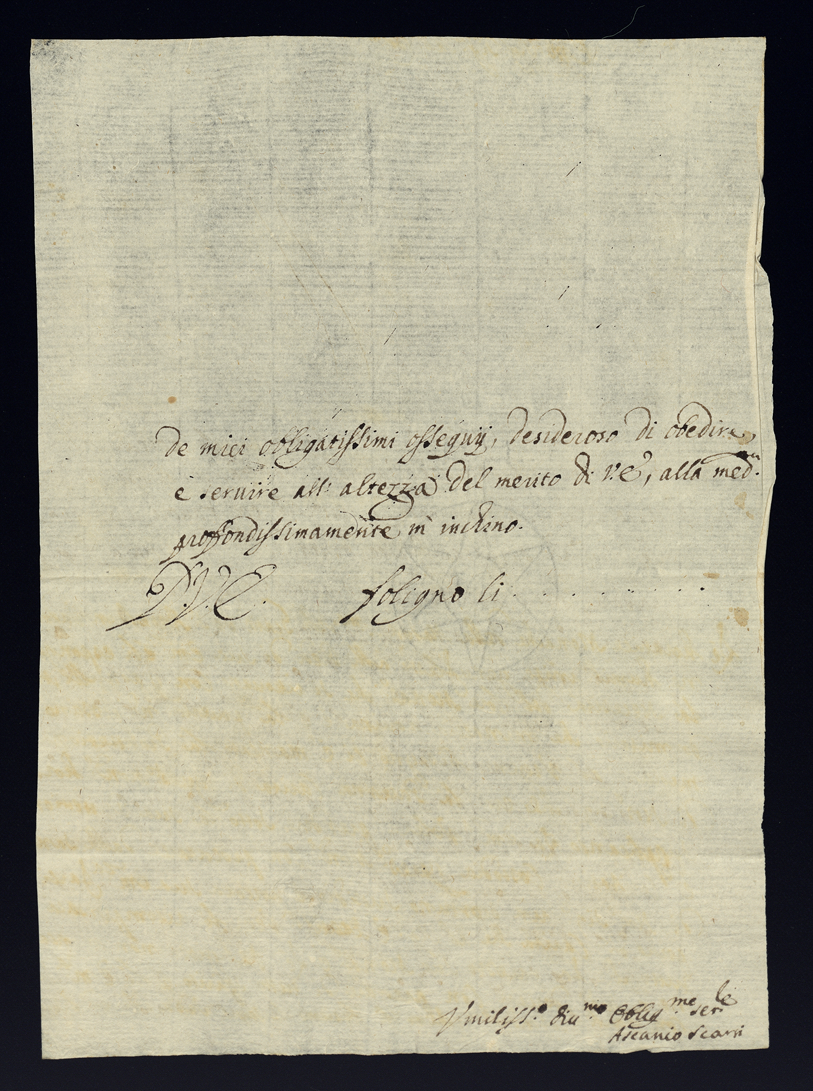 de miei obligatissimi ossequij, desideroso di obedire,
e seruire all' altezza del merito di V.E., alla med.ma
profondissimamente m' inchino.
D.V.E. foligno li . . . . . . . .
Vmiliss.o diu.mo Oblig.me ser.le
Ascanio Scarri